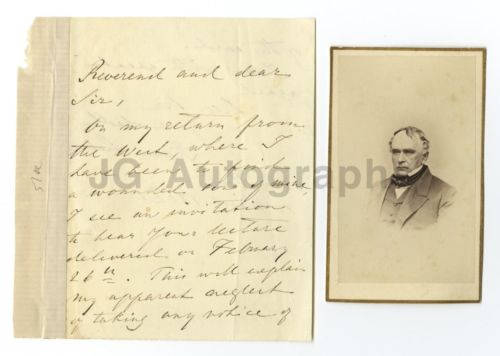 Reverend and dear
Sir,
On my return from
the West, where I
have been to find
a wounded son of mine,
I see an invitation
to hear your lecture
delivered on Febuary
26th. This will explain
my apparent neglect
of taking any notice of
JG Autographs